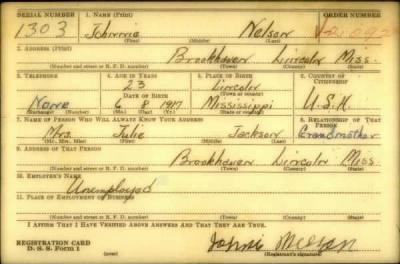 SERIAL NUMBER 1. NAME (Print) ORDER NUMBER
1303 Johnnie Nelson
(First) (Middle) (Last)
2. ADDRESS (Print)
Brookhaven Lincoln Miss.
(Number and street or R. F. D. number) (Town) (County) (State)
3. TELEPHONE 4. AGE IN YEARS 5. PLACE OF BIRTH 6. COUNTRY OF CITIZENSHIP
23 Lincoln
DATE OF BIRTH (Town or county)
None 6 8 1917 Mississippi U.S.A.
(Exchange) (Number) (Mo.) (Day) (Yr.) (State or country)
7. NAME OF PERSON WHO WILL ALWAYS KNOW YOUR ADDRESS 8. RELATIONSHIP OF THAT PERSON
Mrs. Julie Jackson Grandmother
(Mr., Mrs., Miss) (First) (Middle) (Last)
9. ADDRESS OF THAT PERSON
Brookhaven Lincoln Miss.
(Number and street or R. F. D. number) (Town) (County) (State)
10. EMPLOYER'S NAME
Unemployed
11. PLACE OF EMPLOYMENT OR BUSINESS
(Number and street or R. F. D. number) (Town) (County) (State)
I AFFIRM THAT I HAVE VERIFIED ABOVE ANSWERS AND THAT THEY ARE TRUE.
REGISTRATION CARD
D. S. S. Form 1 (over) (Registrant's signature)